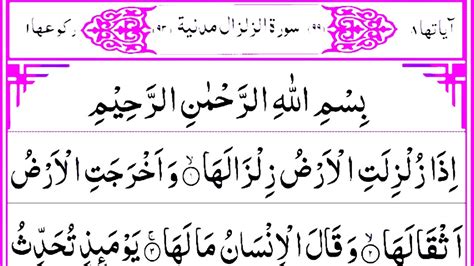 آیاتھا ۸ (۹۹) سورة الزلزال مدنية (۹۳) رکوعھا ۱
بِسْمِ اللهِ الرَّحْمٰنِ الرَّحِيْمِ
اِذَا زُلْزِلَتِ الْاَرْضُ زِلْزَالَهَا ۙ﴿۱﴾ وَ اَخْرَجَتِ الْاَرْضُ
اَثْقَالَهَا ۙ﴿۲﴾ وَ قَالَ الْاِنْسَانُ مَا لَهَا ۚ﴿۳﴾ يَوْمَئِذٍ تُحَدِّثُ